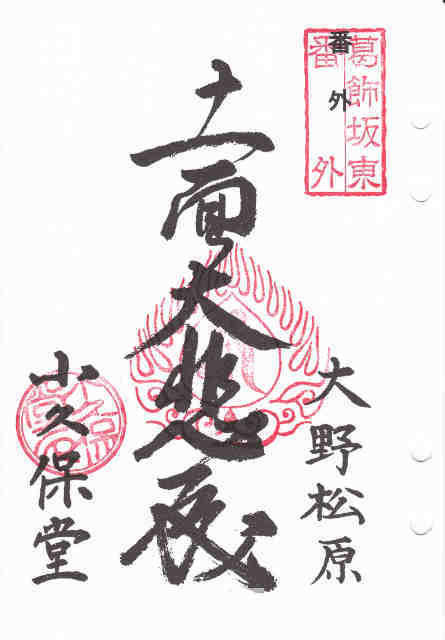 葛飾坂東
番外
番外
大野松原
十一面大悲殿
小久保堂